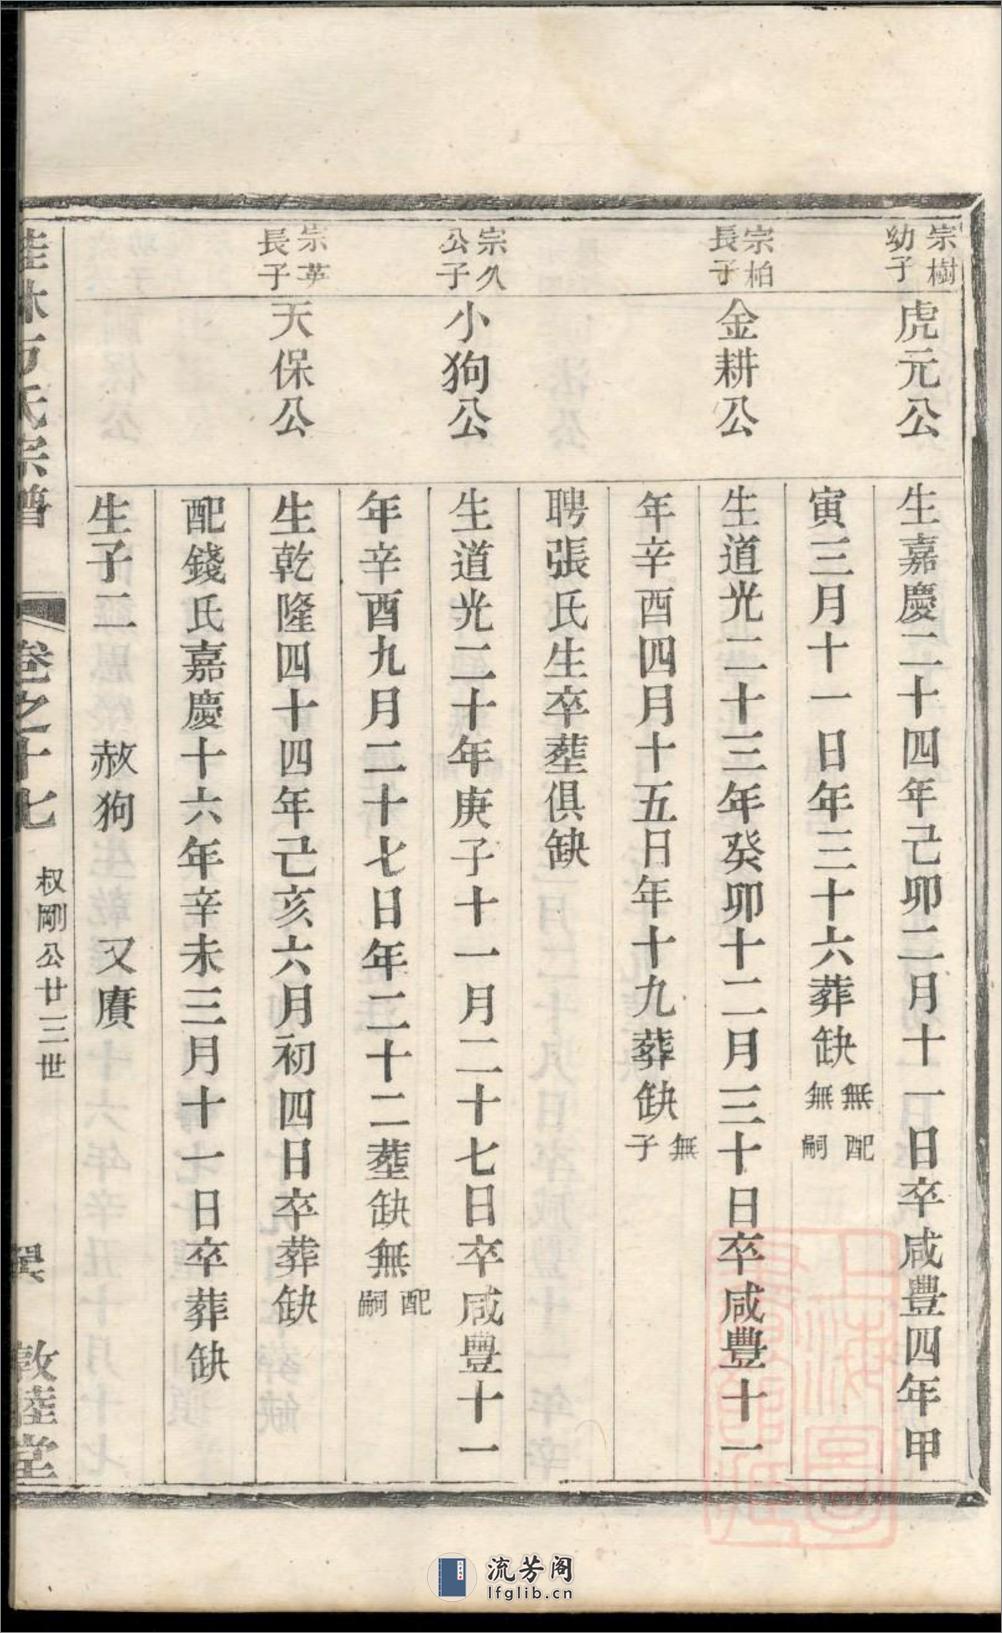 宗樹幼子
虎元公
生嘉慶二十四年己卯二月十一日卒咸豐四年甲
寅三月十一日年三十六葬缺無配無嗣
宗柏長子
金耕公
生道光二十三年癸卯十二月三十日卒咸豐十一
年辛酉四月十五日年十九葬缺無子
聘張氏生卒塟俱缺
宗久公子
小狗公
生道光二十年庚子十一月二十七日卒咸豐十一
年辛酉九月二十七日年二十二塟缺無配嗣
宗英長子
天保公
生乾隆四十四年己亥六月初四日卒葬缺
配錢氏嘉慶十六年辛未三月十一日卒葬缺
生子二 赦狗 又賡
方氏宗譜 卷之十七 叔剛公廿三世 敦睦堂
流芳阁
lfglib.cn